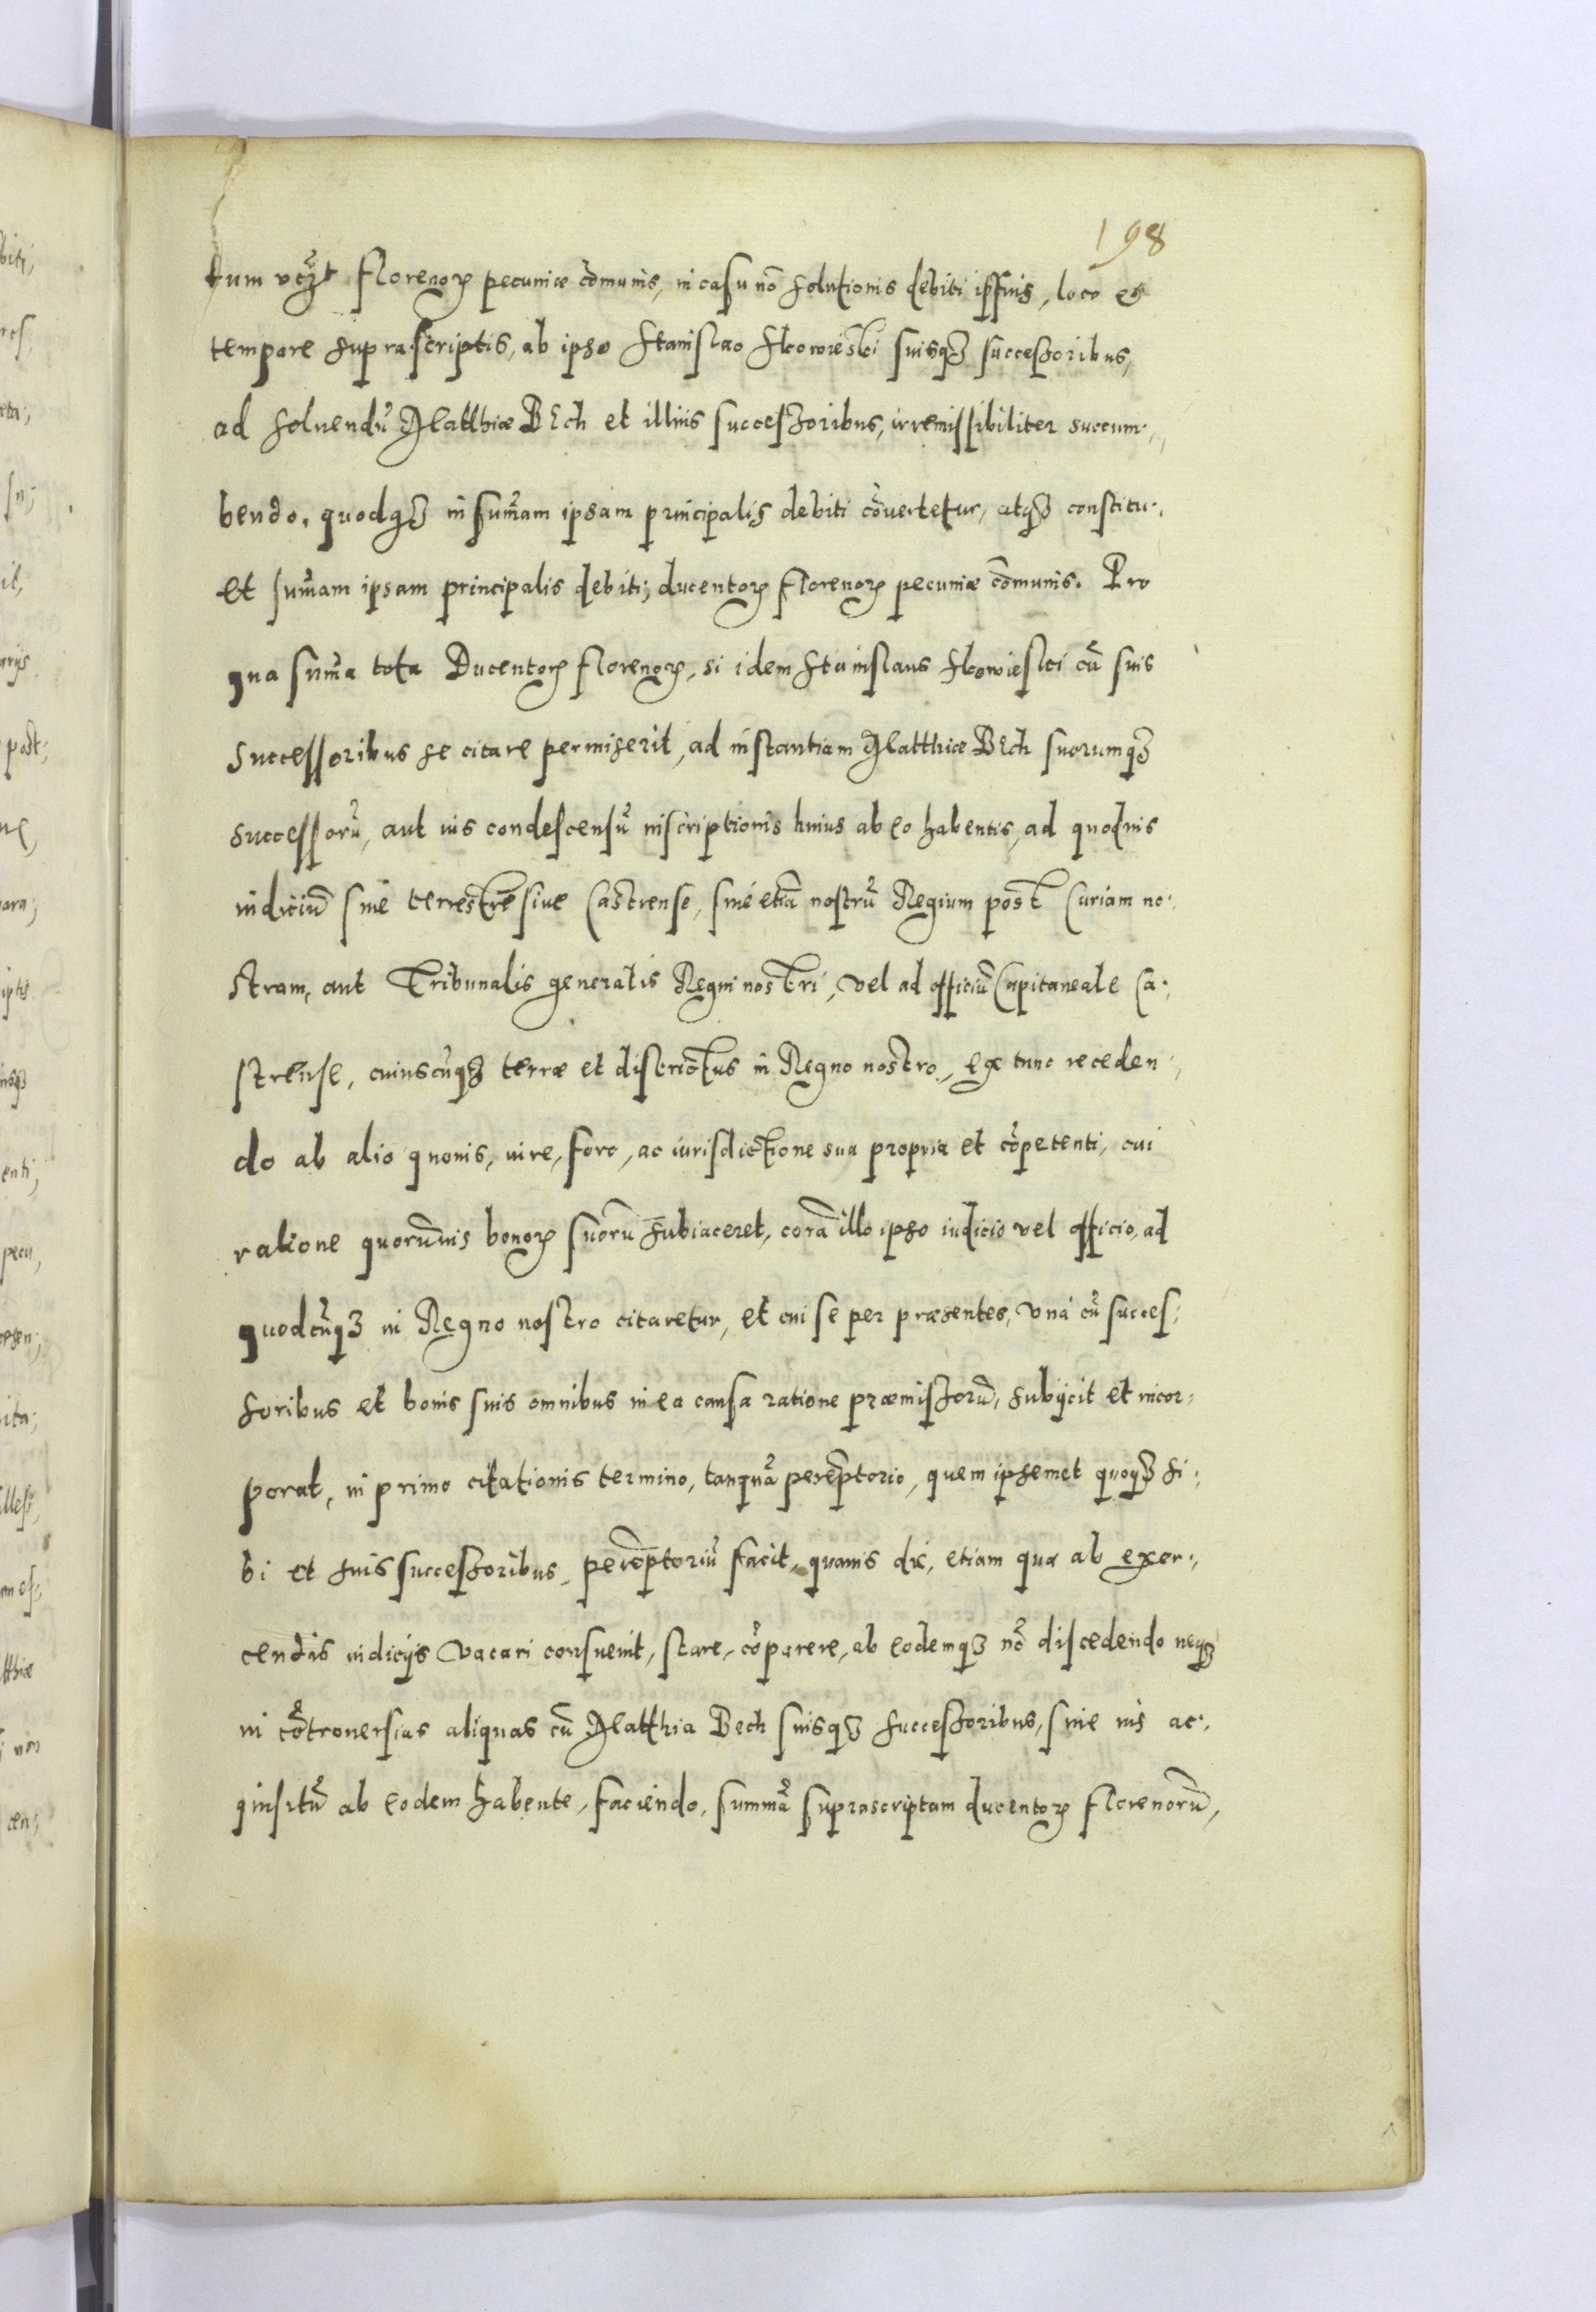 198
tum vcʒt Florenoꝝ pecuniæ cōmunis, in casu nō solutionis debiti ipsius, loco et
tempore suprascriptis, ab ipso Stanislao Skowieski suisqꝫ successoribus,
ad soluendū Matthiæ Bech et illius successoribus, irremissibiliter succum-
bendo, quodqꝫ in sum̄am ipsam principalis debiti cōuertetur, atqꝫ constitu-
et sum̄am ipsam principalis debiti, ducentoꝝ florenoꝝ pecuniæ cōmunis. Pro
qua sum̄a tota Ducentoꝝ florenoꝝ, si idem Stanislaus Skowieski cū suis
successoribus se citare permiserit, ad instantiam Matthiæ Bech suorumqꝫ
successorū, aut ius condescensū inscriptionis huius ab eo habentis, ad quoduis
iudiciū siue terrestre siue Castrense, siue etiā nostrū Regium post Curiam no-
stram, aut Tribunalis generalis Regni nostri, vel ad officiū Capitaneale Ca-
strense, cuiuscūqꝫ terræ et districtus in Regno nostro, ex tunc receden-
do ab alio quouis, iure, foro, ac iurisdictione sua propria et cōpetenti, cui
ratione quorūuis bonoꝝ suorū subiaceret, corā illo ipso iudicio vel officio, ad
quodcūqꝫ in Regno nostro citaretur, et cui se per præsentes, vnà cū succes-
soribus et bonis suis omnibus in ea causa ratione præmissorū, subijcit et incor-
porat, in primo citationis termino, tanquā perēptorio, quem ipsemet quoqꝫ si-
bi et suis successoribus, perēptoriū facit, quauis die, etiam qua ab exer-
cendis iudicijs vacari consueuit, stare, cōparere, ab eodemqꝫ nō discedendo neqꝫ
in cōtrouersias aliquas cū Matthia Bech suisqꝫ successoribus, siue ius ac-
quisitū ab eodem habente, faciendo, summā suprascriptam ducentoꝝ florenorū,